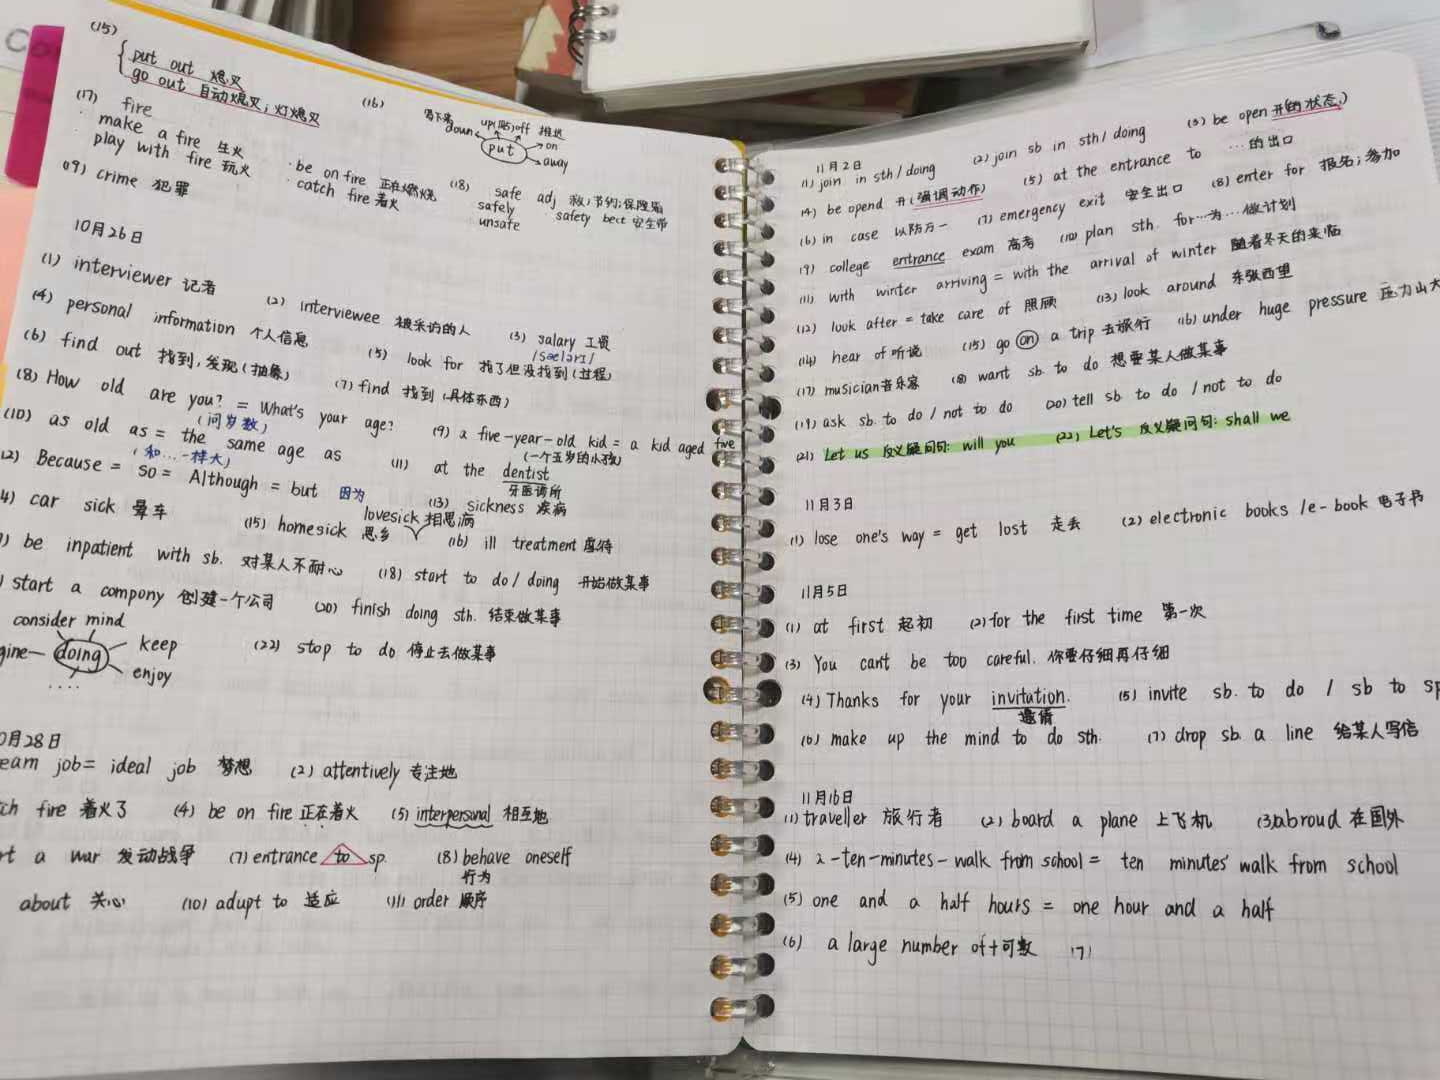 (15)
put out 熄灭
go out 自动熄灭;灯熄灭
(16)
写下来
down up(贴) off 推迟
put on
away
(17) fire
make a fire 生火
play with fire 玩火
be on fire 正在燃烧
catch fire 着火
(18) safe adj
safely
unsafe
safety belt 安全带
(19) crime 犯罪
10月26日
(1) interviewer 记者 (2) interviewee 被采访的人 (3) salary 工资
(4) personal information 个人信息 (5) look for 找了但没找到(过程)
(6) find out 找到,发现(抽象) (7) find 找到(具体东西)
(8) How old are you? = What's your age? (9) a five-year-old kid = a kid aged five
(问岁数) (一个五岁的小孩)
(10) as old as = the same age as (11) at the dentist
(和...一样大) 牙医诊所
12) Because = so = Although = but 因为 (13) sickness 疾病
4) car sick 晕车 (15) homesick 思乡 lovesick 相思病 (16) ill treatment 虐待
) be inpatient with sb. 对某人不耐心 (18) start to do / doing 开始做某事
) start a company 创建一个公司 (20) finish doing sth. 结束做某事
consider mind
gine doing keep
enjoy
....
(22) stop to do 停止去做某事
0月28日
eam job = ideal job 梦想 (2) attentively 专注地
tch fire 着火了 (4) be on fire 正在着火 (5) interpersonal 相互地
rt a war 发动战争 (7) entrance to sp. (8) behave oneself
行为
about 关心 (10) adupt to 适应 (11) order 顺序
11月2日
(1) join in sth / doing (2) join sb in sth / doing (3) be open 开(的状态)
(4) be opend 开(强调动作) (5) at the entrance to ...的出口
(6) in case 以防万一 (7) emergency exit 安全出口 (8) enter for 报名;参加
(9) college entrance exam 高考 (10) plan sth. for...为...做计划
(11) with winter arriving = with the arrival of winter 随着冬天的来临
(12) look after = take care of 照顾 (13) look around 东张西望
(14) hear of 听说 (15) go on a trip 去旅行 (16) under huge pressure 压力山大
(17) musician 音乐家 (18) want sb. to do 想要某人做某事
(19) ask sb. to do / not to do (20) tell sb to do / not to do
(21) Let us 反义疑问句: will you (22) Let's 反义疑问句: shall we
11月3日
(1) lose one's way = get lost 走丢 (2) electronic books / e-book 电子书
11月5日
(1) at first 起初 (2) for the first time 第一次
(3) You can't be too careful. 你要仔细再仔细
(4) Thanks for your invitation. (5) invite sb. to do / sb to sp
邀请
(6) make up the mind to do sth. (7) drop sb. a line 给某人写信
11月16日
(1) traveller 旅行者 (2) board a plane 上飞机 (3) abroud 在国外
(4) a-ten-minutes-walk from school = ten minutes' walk from school
(5) one and a half hours = one hour and a half
(6) a large number of+可数 (7)